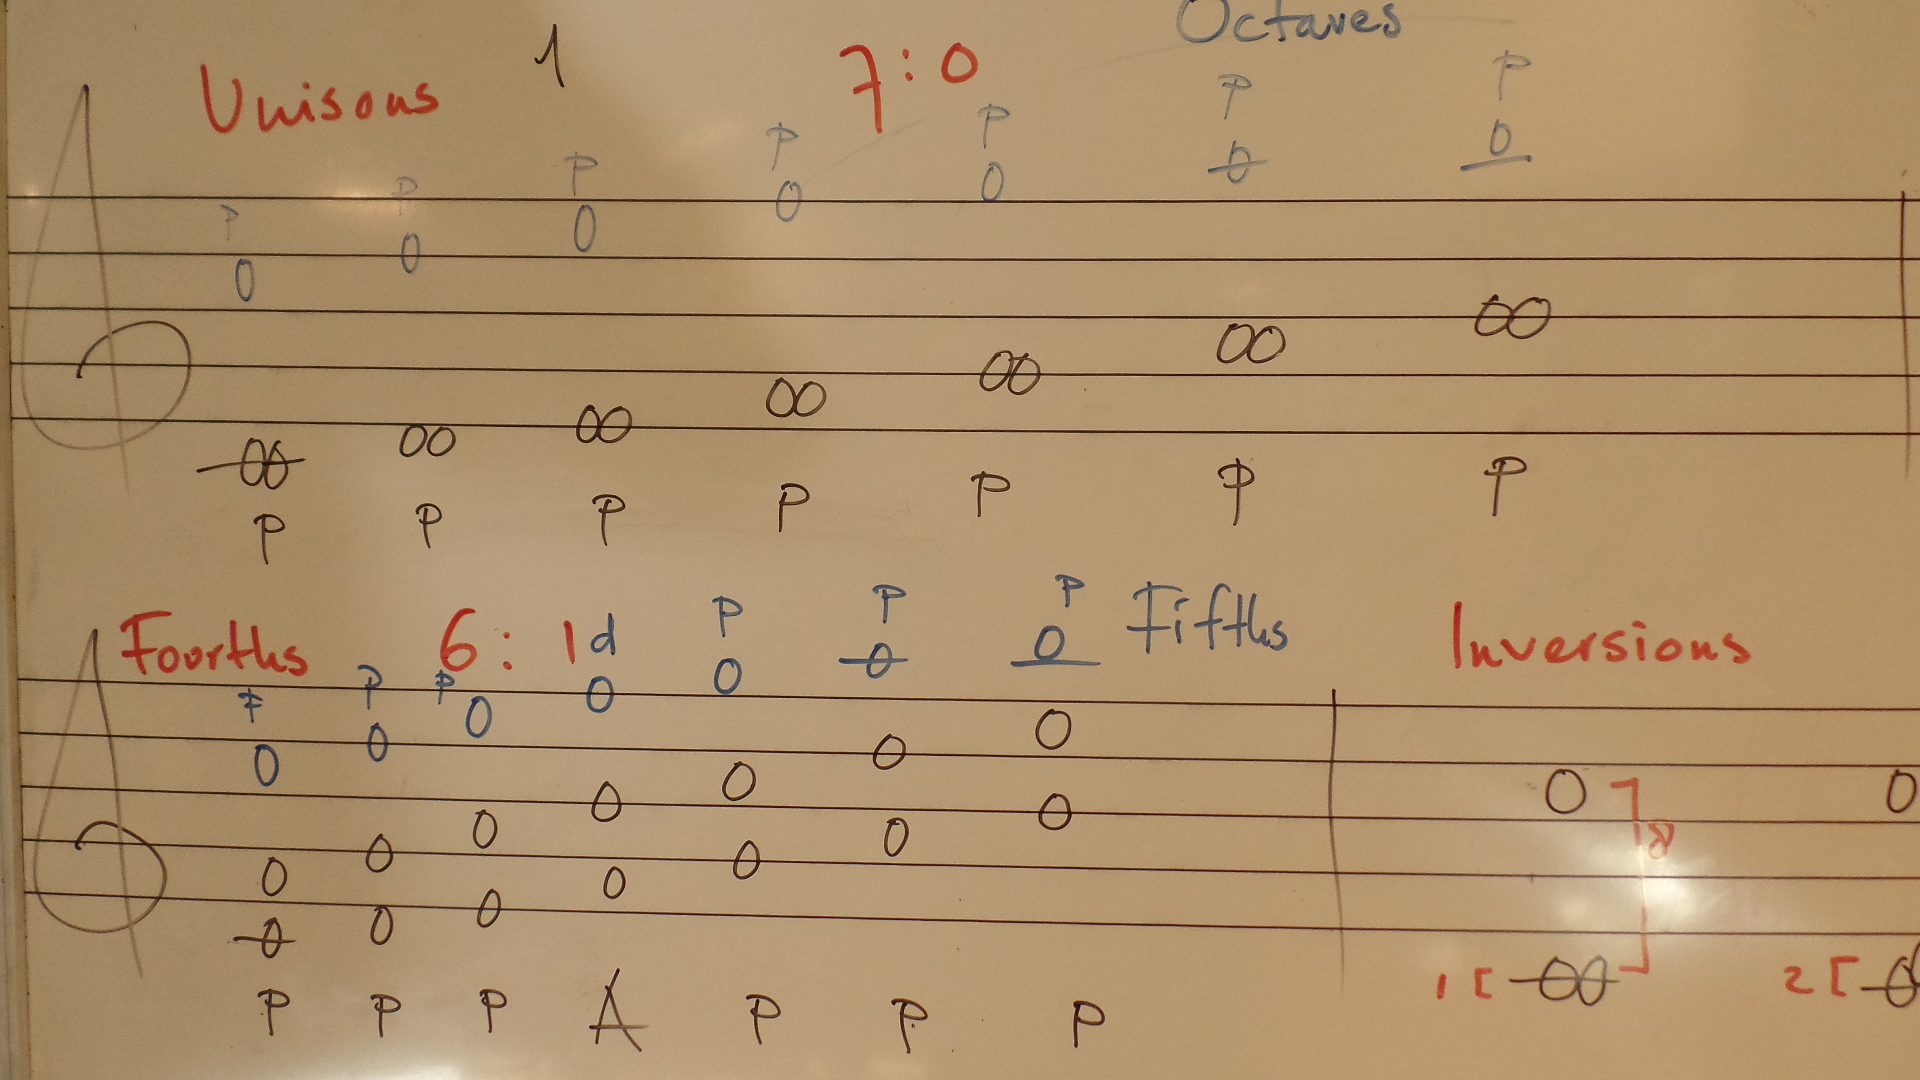 Octaves
Unisons 1 7:0
P P P P P P P
P P P P P P P
Fourths 6:1 Fifths Inversions
P P P d P P P
8
1 [ 2 [
P P P A P P P